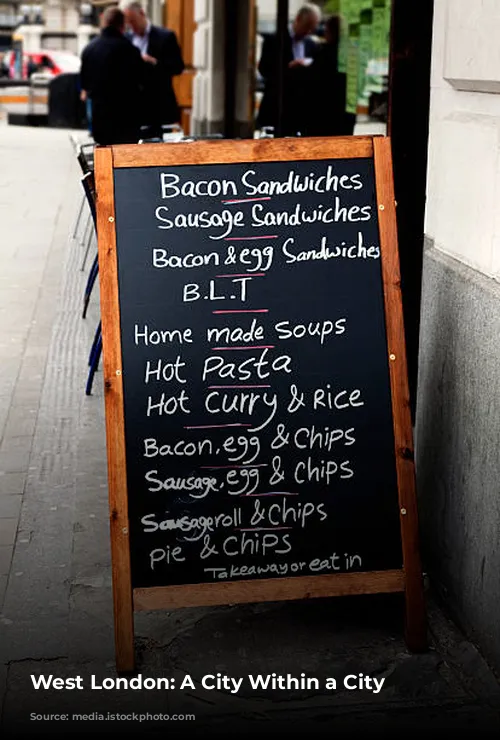 Bacon Sandwiches
Sausage Sandwiches
Bacon & egg Sandwiches
B.L.T
Home made Soups
Hot Pasta
Hot Curry & Rice
Bacon, egg & Chips
Sausage, egg & Chips
Sausageroll & Chips
pie & Chips
Takeaway or eat in
West London: A City Within a City
Source: media.istockphoto.com